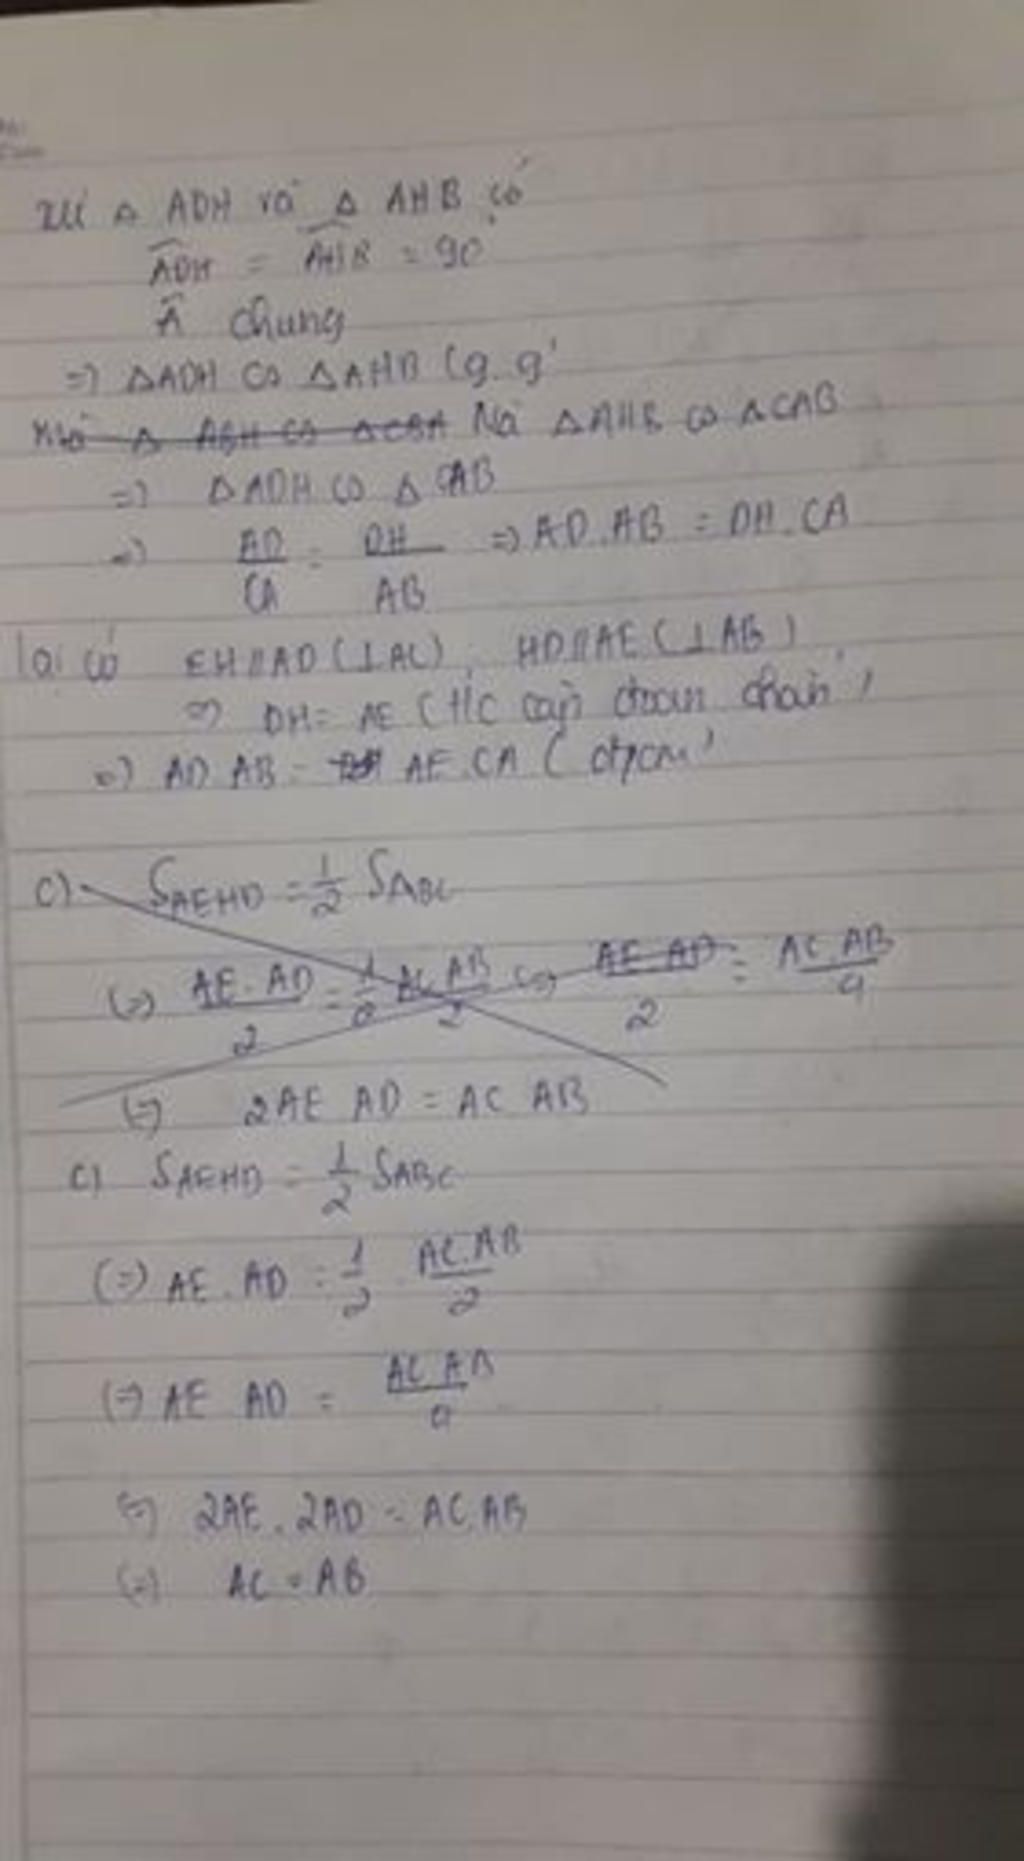 Xét Δ ADH và Δ AHB có
ADH = AHB = 90°
Â chung
=> ΔADH ∽ ΔAHB (g.g)
Δ ABH ∽ ΔCBA Mà ΔAHB ∽ ΔCAB
=> ΔADH ∽ ΔCAB
=> AD/CA = DH/AB => AD.AB = DH.CA
lại có EH//AD (⊥AC), HD//AE (⊥AB)
=> DH = AE (t/c cặp đoạn chắn)
=> AD.AB = AE.CA (đpcm)
c) SAEHD = 1/2 SABC
(=) AE.AD/2 = 1/2 AC.AB/2 (=) AE.AD/2 = AC.AB/4
(=) 2AE AD = AC AB
c) SAEHD = 1/2 SABC
(=) AE.AD = 1/2 . AC.AB/2
(=) AE AD = AC AB/4
(=) 2AE.2AD = AC.AB
(=) AC = AB